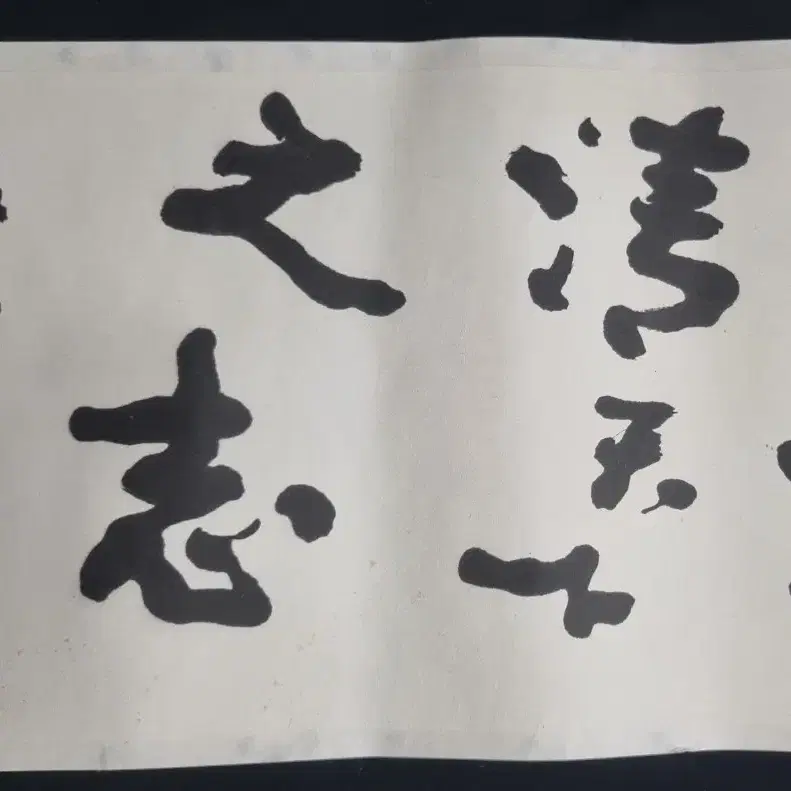 清天下
之志